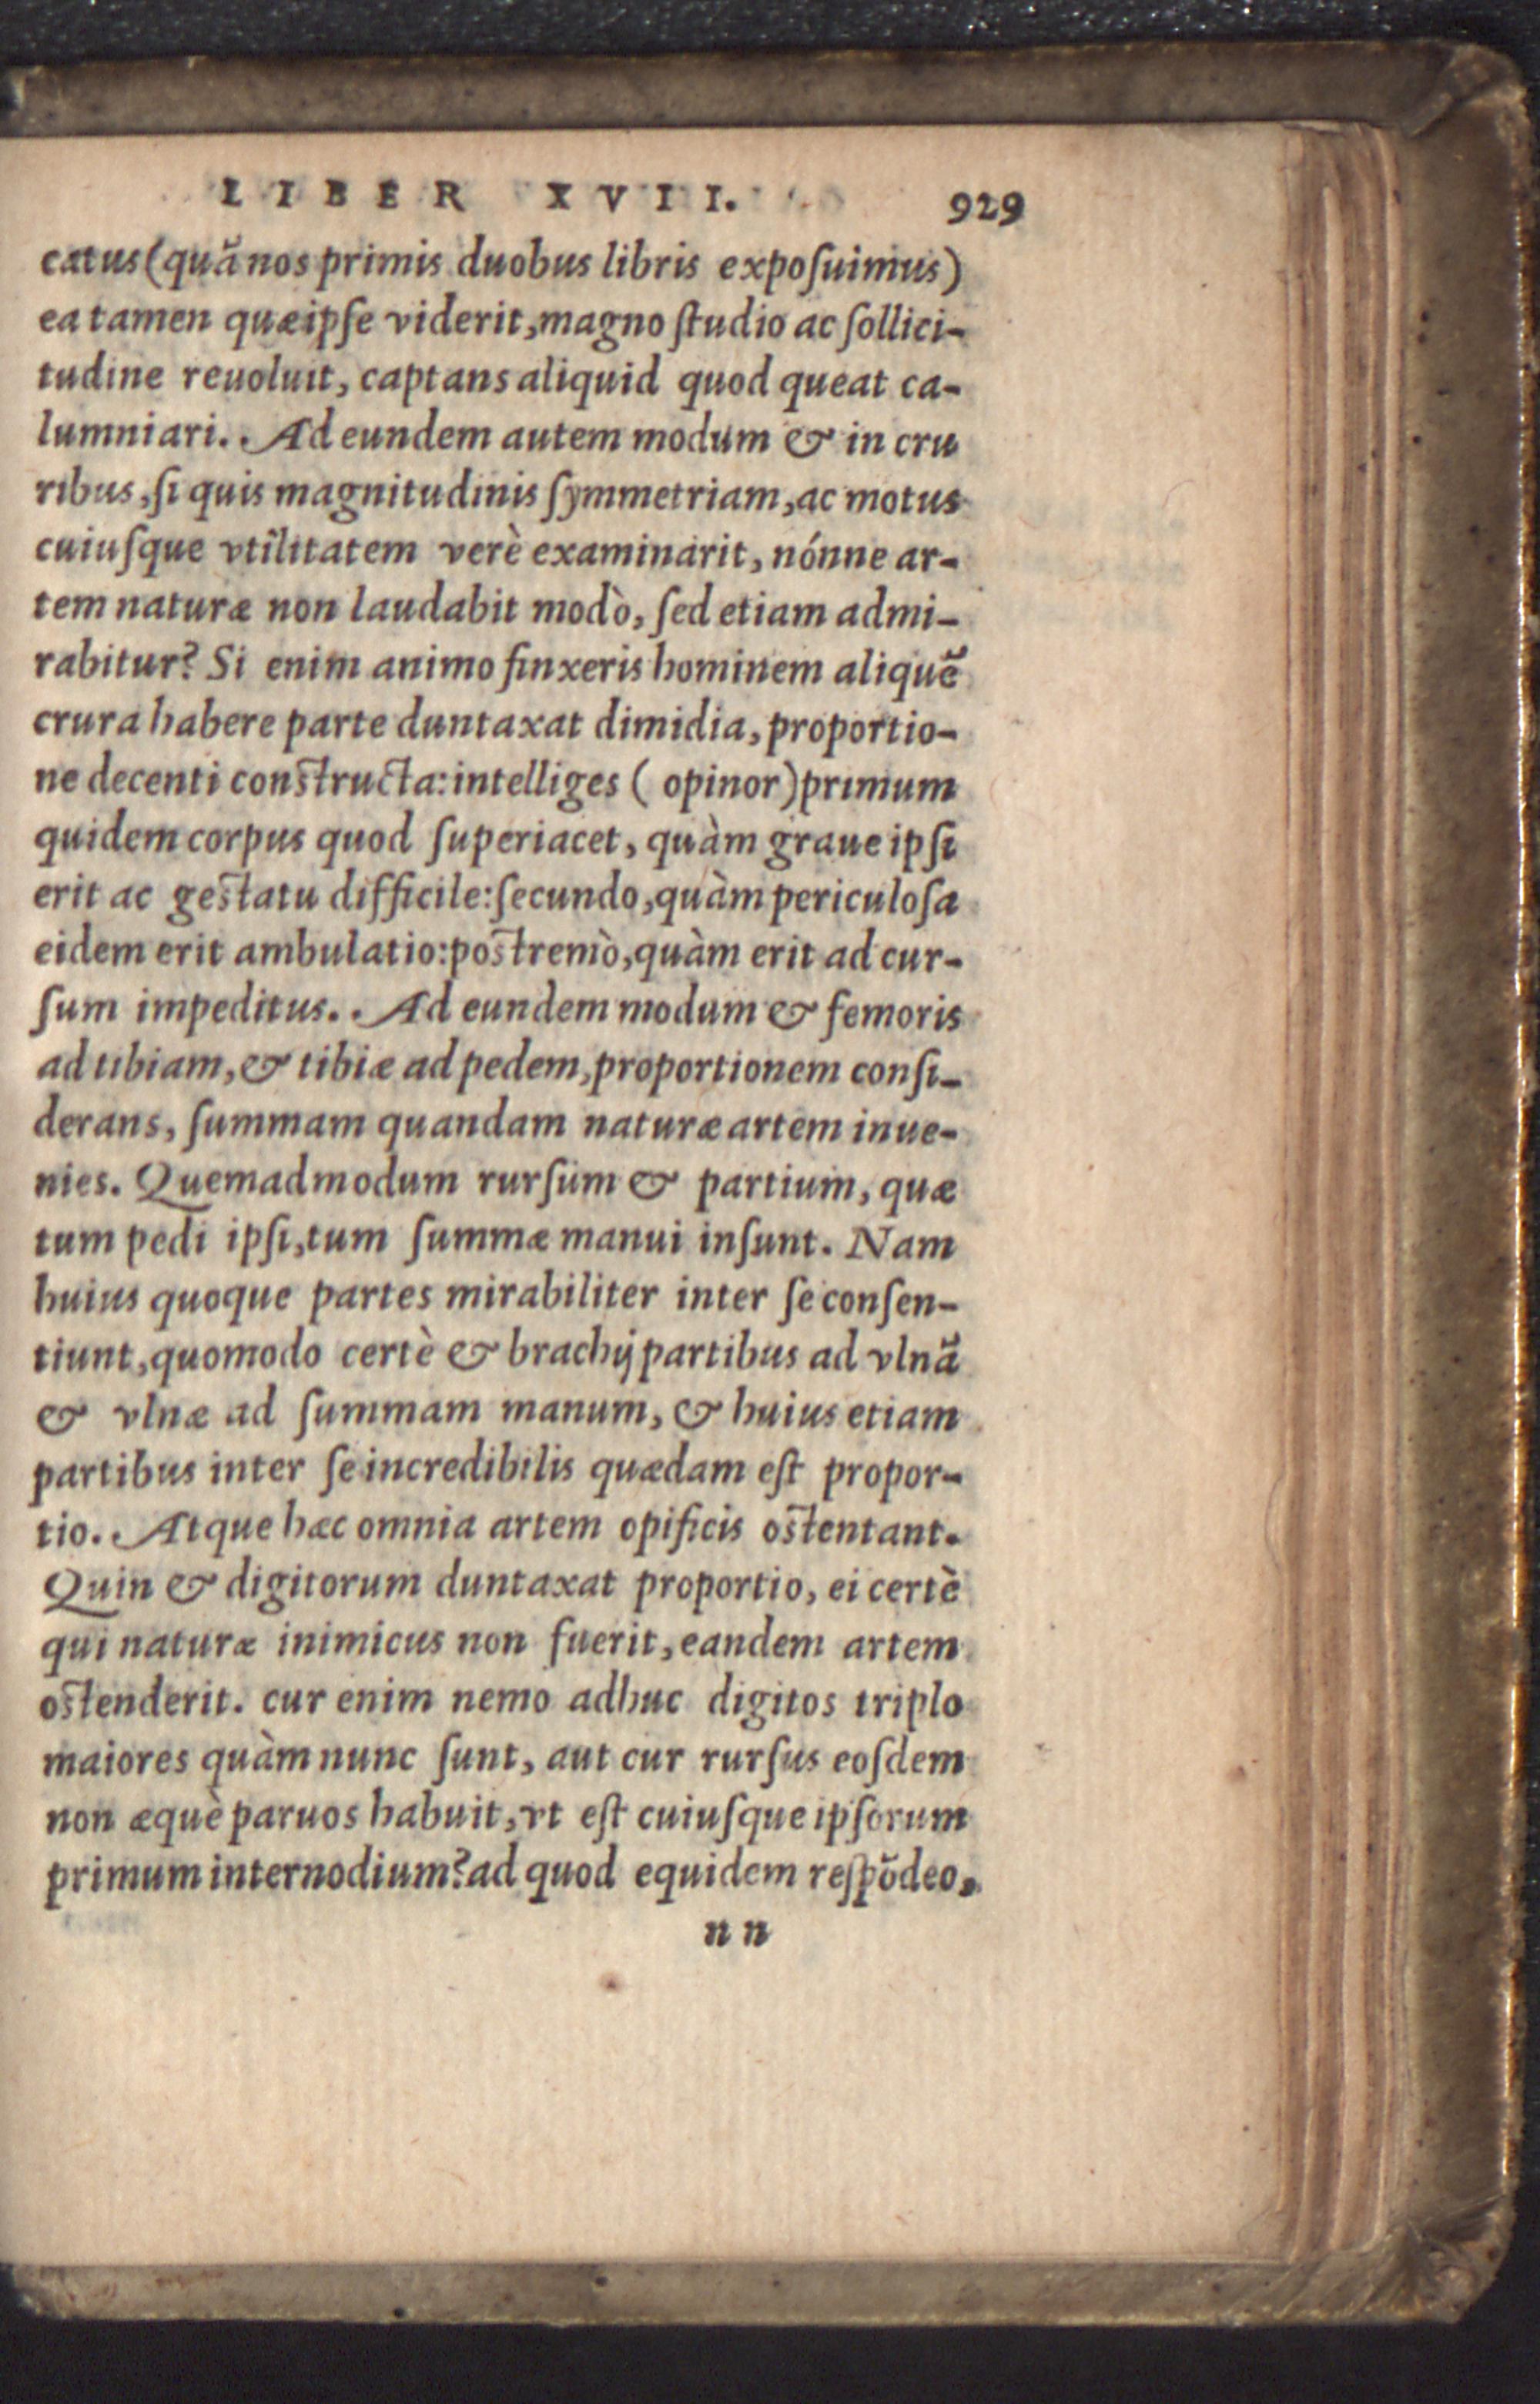 LIBER XVII. 929
catus (quā nos primis duobus libris exposuimus)
ea tamen quæ ipse viderit, magno studio ac sollici-
tudine reuoluit, captans aliquid quod queat ca-
lumniari. Ad eundem autem modum & in cru
ribus, si quis magnitudinis symmetriam, ac motus
cuiusque vtilitatem verè examinarit, nónne ar-
tem naturæ non laudabit modò, sed etiam admi-
rabitur? Si enim animo finxeris hominem aliquē
crura habere parte duntaxat dimidia, proportio-
ne decenti constructa: intelliges ( opinor) primum
quidem corpus quod superiacet, quàm graue ipsi
erit ac gestatu difficile: secundo, quàm periculosa
eidem erit ambulatio: postremò, quàm erit ad cur-
sum impeditus. Ad eundem modum & femoris
ad tibiam, & tibiæ ad pedem, proportionem consi-
derans, summam quandam naturæ artem inue-
nies. Quemadmodum rursum & partium, quæ
tum pedi ipsi, tum summæ manui insunt. Nam
huius quoque partes mirabiliter inter se consen-
tiunt, quomodo certè & brachij partibus ad vlnā
& vlnæ ad summam manum, & huius etiam
partibus inter se incredibilis quædam est propor-
tio. Atque hæc omnia artem opificis ostentant.
Quin & digitorum duntaxat proportio, ei certè
qui naturæ inimicus non fuerit, eandem artem
ostenderit. cur enim nemo adhuc digitos triplo
maiores quàm nunc sunt, aut cur rursus eosdem
non æquè paruos habuit, vt est cuiusque ipsorum
primum internodium? ad quod equidem respōdeo,
nn